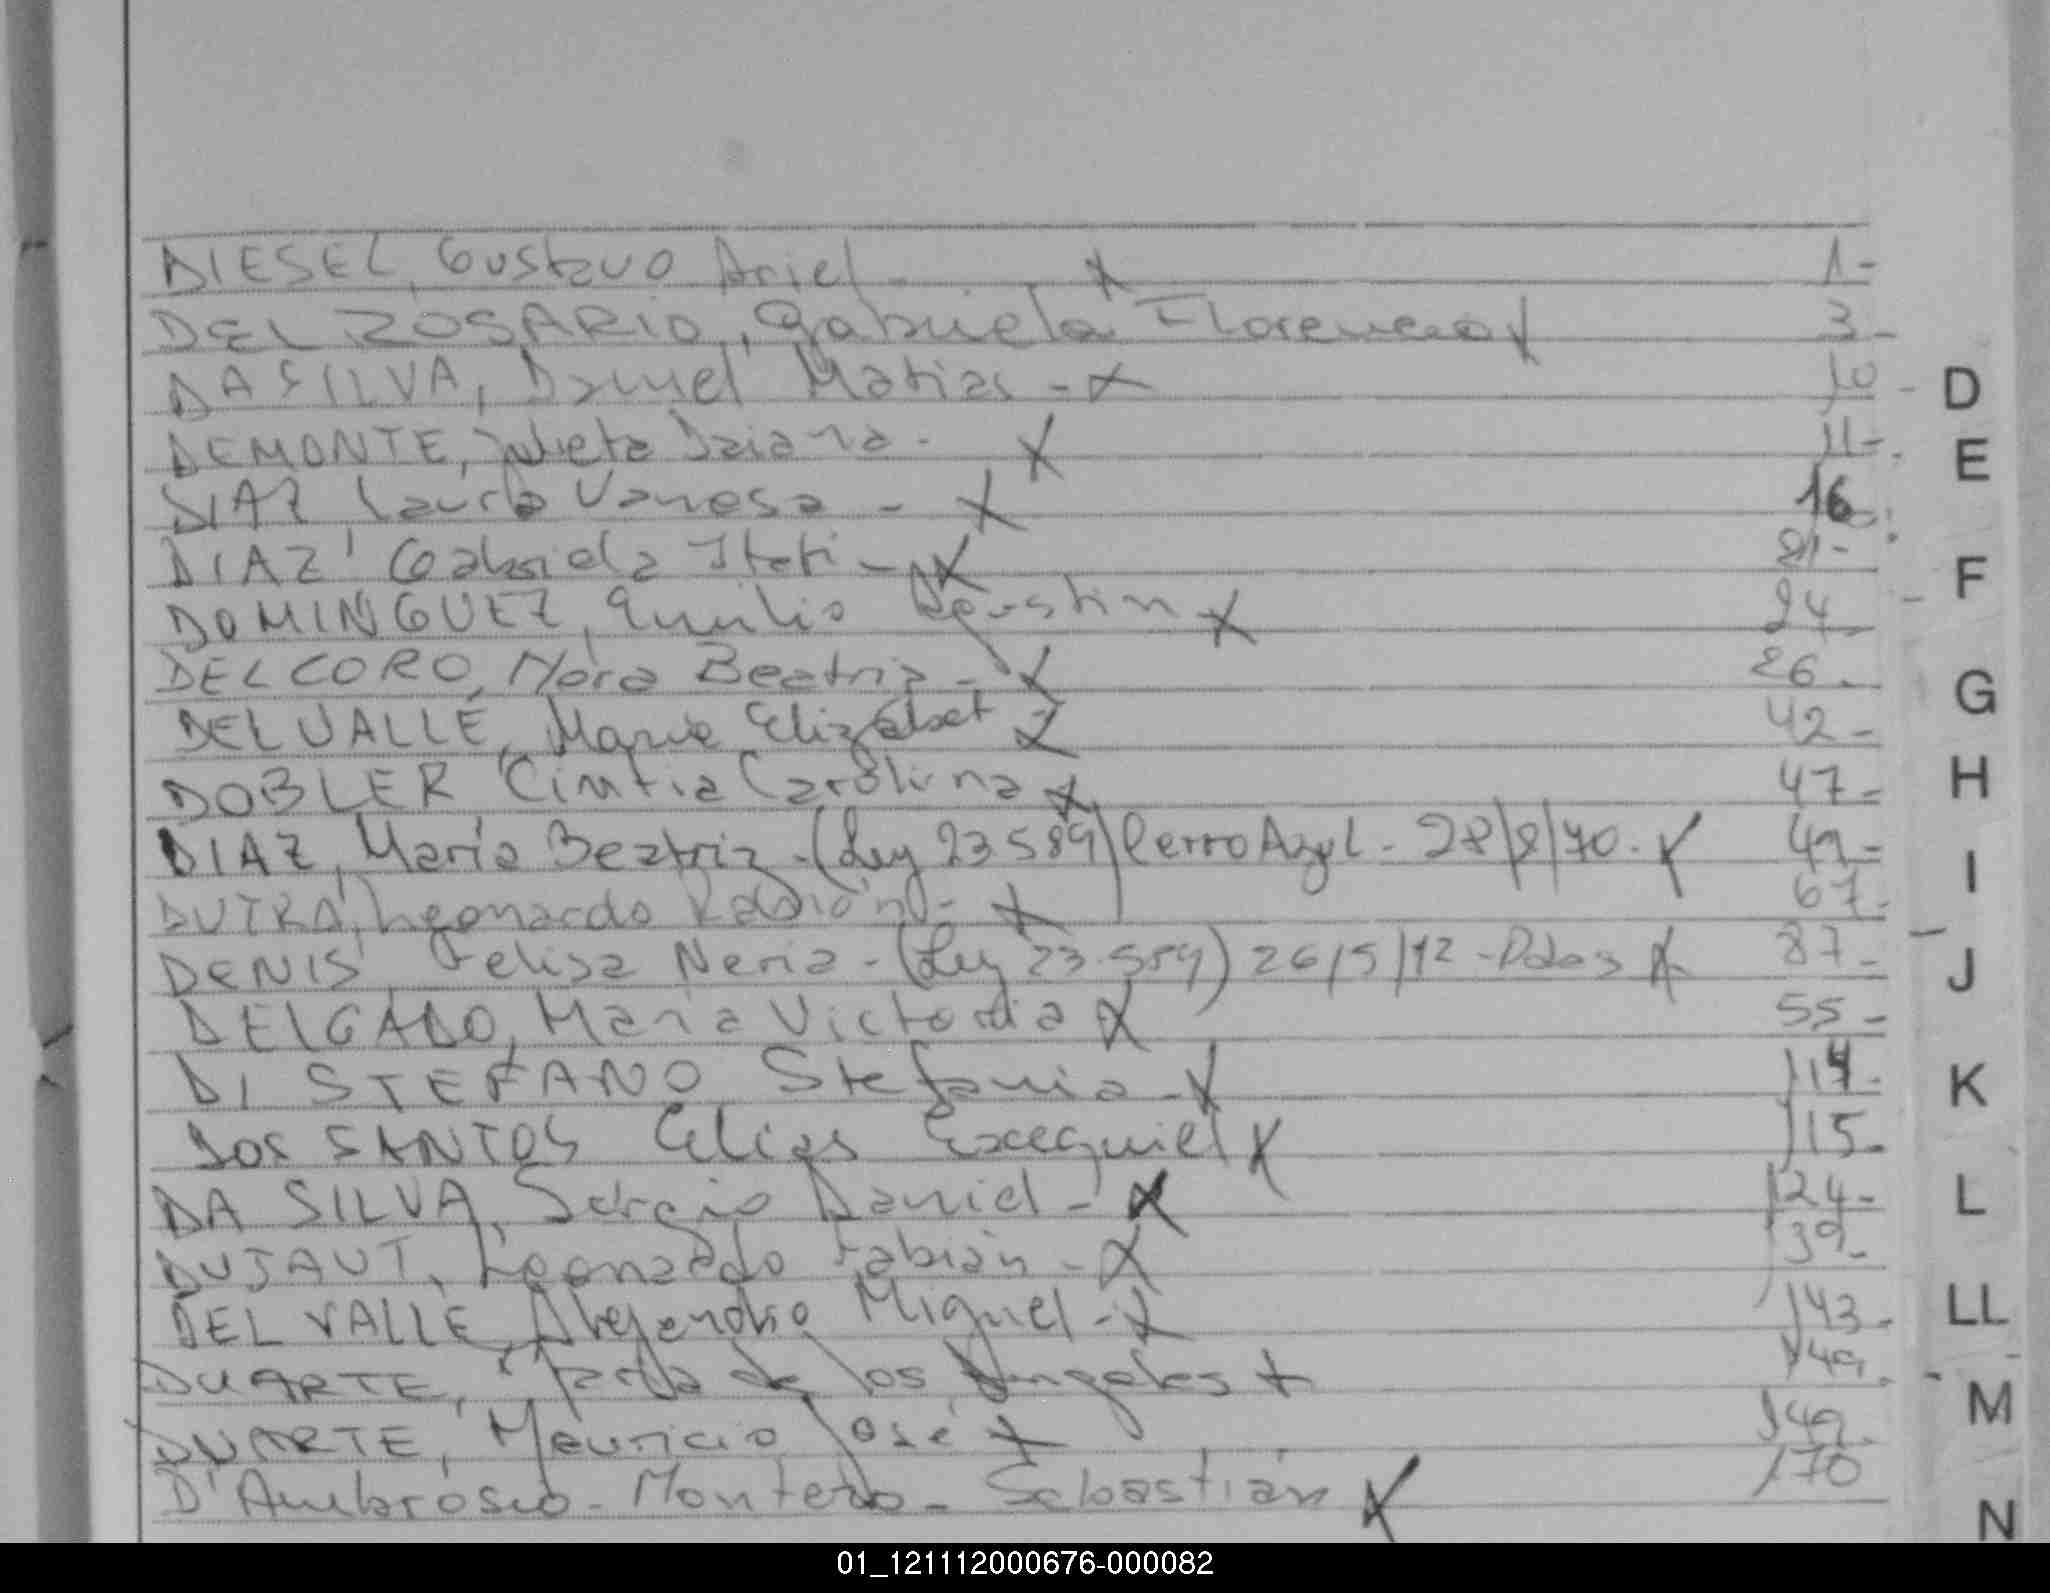 DIESEL, Gustavo Ariel - x 1-
DEL ROSARIO, Gabriela Florencia x 3-
DA SILVA, Daniel Matias - x 10-
DEMONTE, Julieta Daiana - x 11-
DIAZ Laura Vanesa - x 16-
DIAZ, Gabriela Itati - x 21-
DOMINGUEZ, Emilio Agustin x 24-
DELCORO, Nora Beatriz - x 26-
DEL VALLE, Maria Elizabet x 42-
DOBLER Cintia Carolina x 47-
DIAZ, María Beatriz - (Ley 23589) Cerro Azul - 28/8/70. x 49-
DUTRA, Leonardo Fabián - x 67-
DENIS, Felisa Neria - (Ley 23.559) 26/5/12 - x 87-
DELGADO, Maria Victoria x 55-
DI STEFANO Stefania - x 114-
DOS SANTOS Elias Exequiel x 115-
DA SILVA, Sergio Daniel - x 124-
DUJAUT, Leonardo Fabián - x 139-
DEL VALLE, Alejandro Miguel - x 143-
DUARTE, de los Angeles x 149-
DUARTE, Mauricio José x 149-
D'Ambrosio - Montero - Sebastián x 170
D
E
F
G
H
I
J
K
L
LL
M
N
01_121112000676-000082